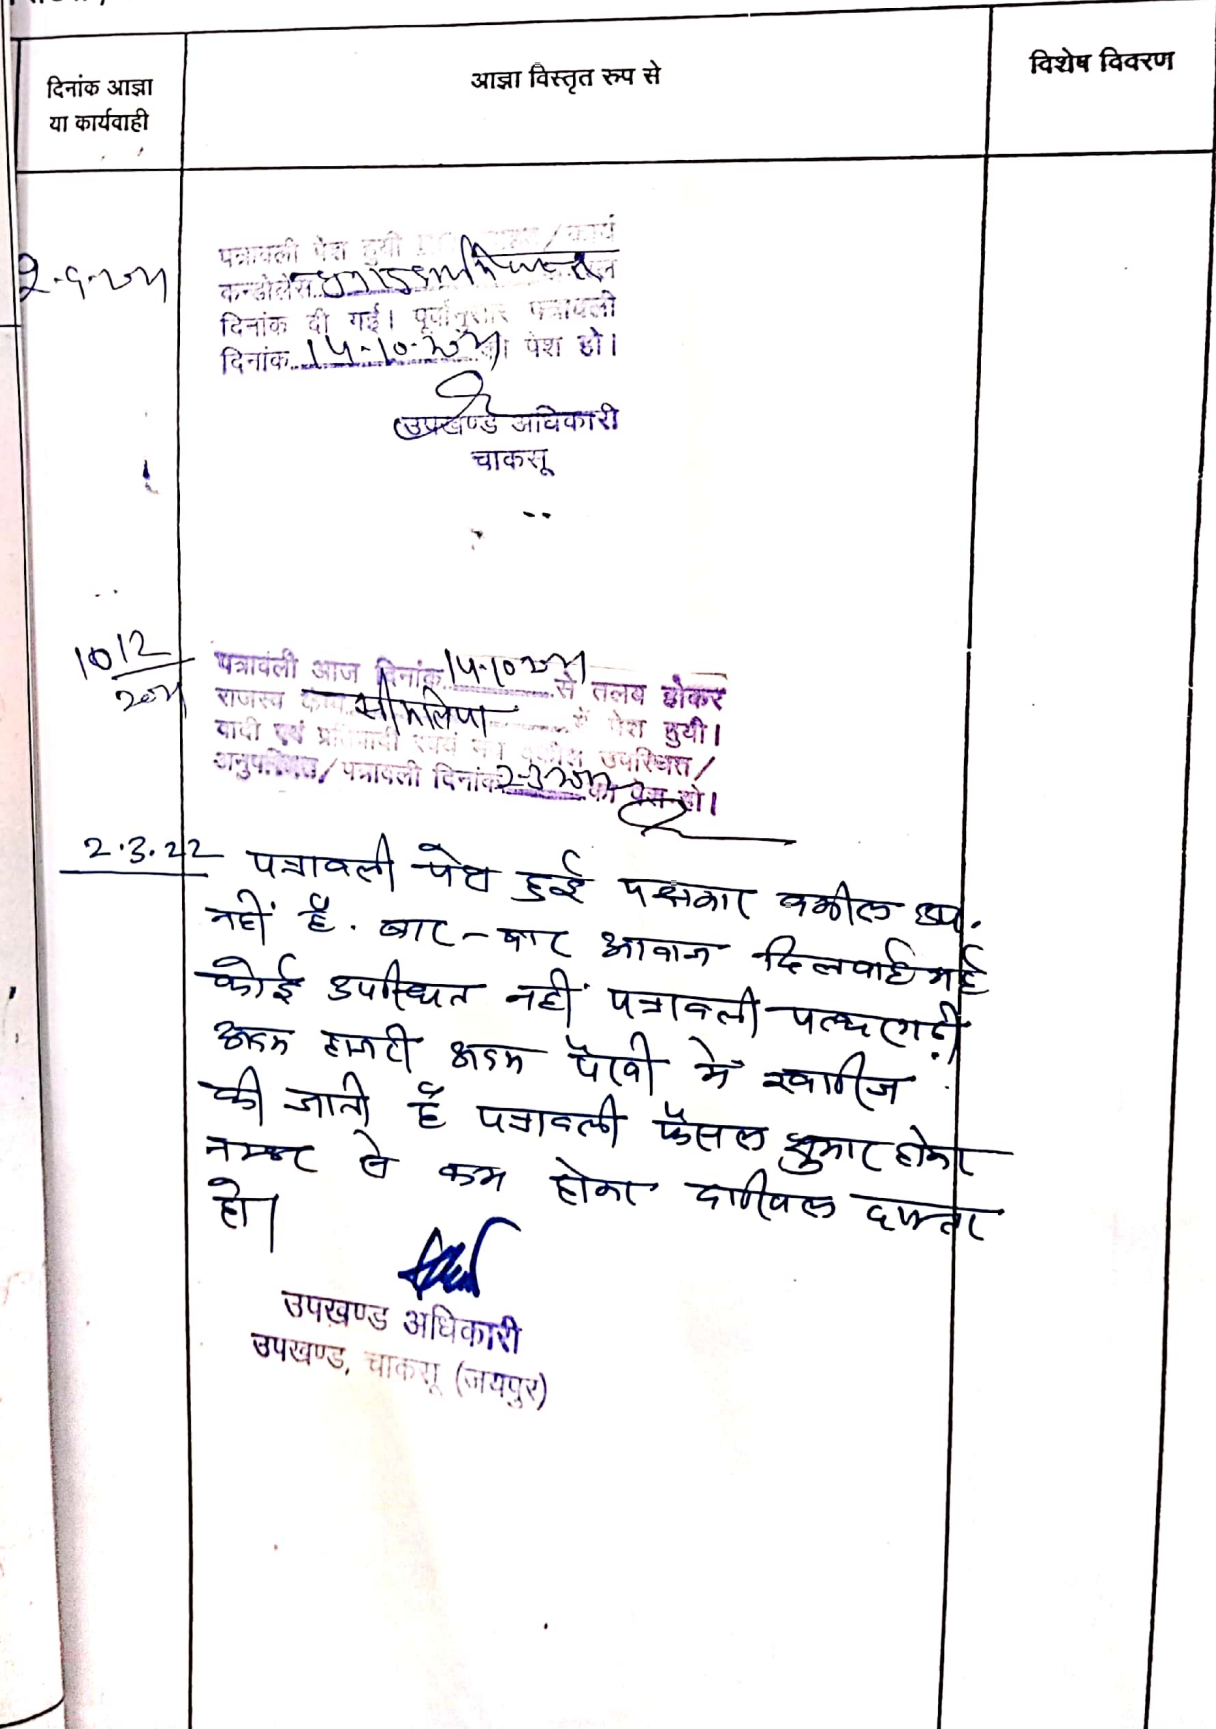 दिनांक आज्ञा
या कार्यवाही
आज्ञा विस्तृत रुप से
विशेष विवरण
पत्रावली पेश हुयी / कार्य
कन्डोलेंस
दिनांक दी गई। पूर्वानुसार पत्रावली
दिनांक 14-10-2021 को पेश हो।
उपखण्ड अधिकारी
चाकसू
10 12
2021
पत्रावली आज दिनांक 14-10-2021 से तलब होकर
राजस्व में पेश हुयी।
वादी एवं प्रतिवादी स्वयं मय वकील उपस्थित /
अनुपस्थित / पत्रावली दिनांक 2-3-2022 को पेश हो।
2.3.22 पत्रावली पेश हुई पक्षकार वकील उप.
नहीं है. बार-बार आवाज दिलवाई गई
कोई उपस्थित नहीं पत्रावली
अदम हाजरी अदम पैरवी में खारीज
की जाती है पत्रावली फैसल शुमार होकर
नम्बर से कम होकर दाखिल दफ्तर
हो।
उपखण्ड अधिकारी
उपखण्ड, चाकसू (जयपुर)